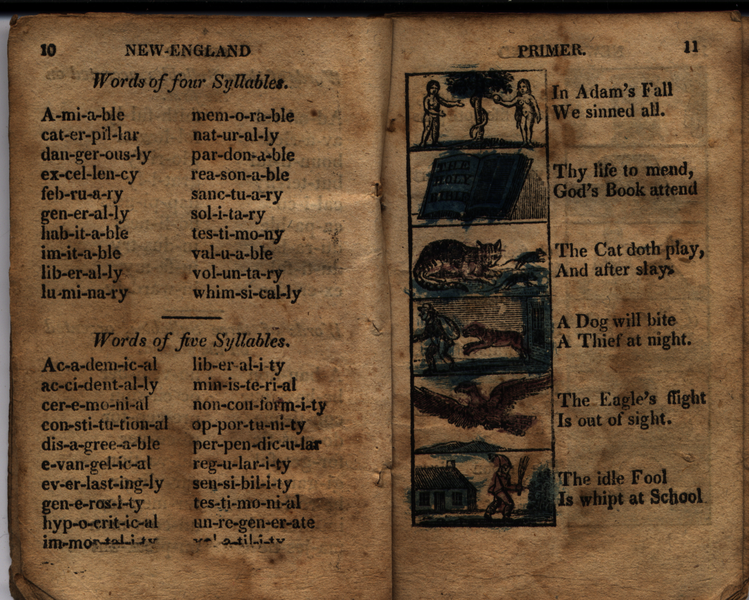 10 NEW-ENGLAND
Words of four Syllables.
A-mi-a-ble
cat-er-pil-lar
dan-ger-ous-ly
ex-cel-len-cy
feb-ru-a-ry
gen-er-al-ly
hab-it-a-ble
im-it-a-ble
lib-er-al-ly
lu-mi-na-ry
mem-o-ra-ble
nat-ur-al-ly
par-don-a-ble
rea-son-a-ble
sanc-tu-a-ry
sol-i-ta-ry
tes-ti-mo-ny
val-u-a-ble
vol-un-ta-ry
whim-si-cal-ly
Words of five Syllables.
Ac-a-dem-ic-al
ac-ci-dent-al-ly
cer-e-mo-ni-al
con-sti-tu-tion-al
dis-a-gree-a-ble
e-van-gel-ic-al
ev-er-last-ing-ly
gen-e-ros-i-ty
hyp-o-crit-ic-al
im-mor-tal-i-ty
lib-er-al-i-ty
min-is-te-ri-al
non-con-form-i-ty
op-por-tu-ni-ty
per-pen-dic-u-lar
reg-u-lar-i-ty
sen-si-bil-i-ty
tes-ti-mo-ni-al
un-re-gen-er-ate
vol-a-til-i-ty
PRIMER. 11
In Adam's Fall
We sinned all.
THE
HOLY
BIBLE
Thy life to mend,
God's Book attend
The Cat doth play,
And after slays
A Dog will bite
A Thief at night.
The Eagle's flight
Is out of sight.
The idle Fool
Is whipt at School